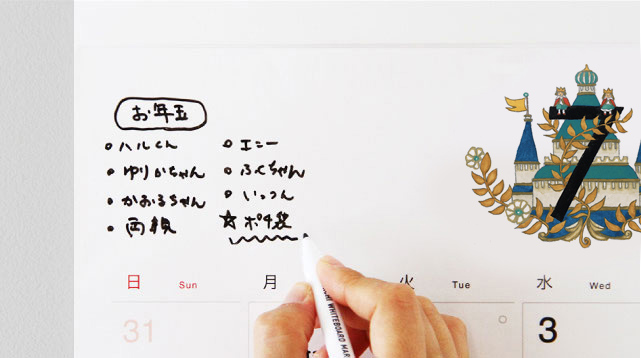 お年玉
ハルくん
ゆりかちゃん
かおるちゃん
両親
エミー
ふくちゃん
いっつん
☆ポチ袋
7
日 Sun
月
火 Tue
水 Wed
31
3
WHITEBOARD MAR